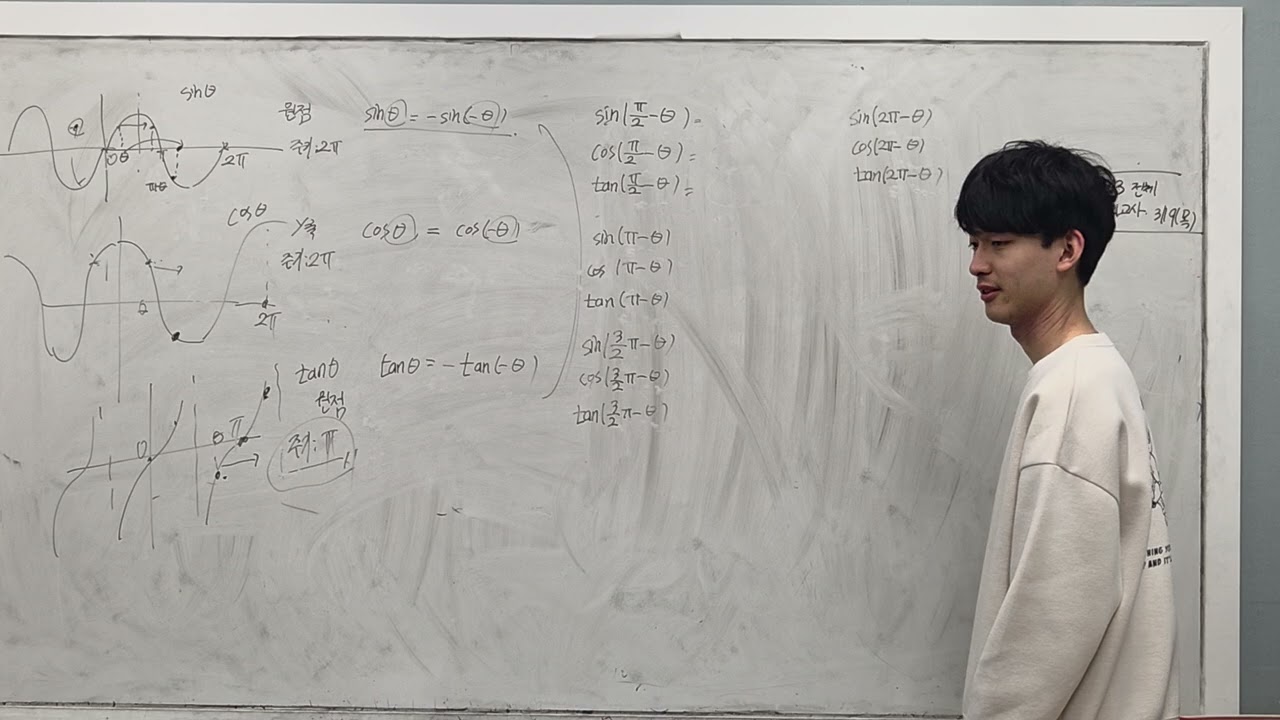 sinθ
원점
주기:2π
0 θ
2π
sinθ = -sin(-θ)
cosθ
y축
주기:2π
θ
2π
cosθ = cos(-θ)
tanθ
원점
주기:π
0
θ π
tanθ = -tan(-θ)
sin(π/2-θ)=
cos(π/2-θ)=
tan(π/2-θ)=
sin(π-θ)
cos(π-θ)
tan(π-θ)
sin(3/2π-θ)
cos(3/2π-θ)
tan(3/2π-θ)
sin(2π-θ)
cos(2π-θ)
tan(2π-θ)
3/19(목)
AND IT'